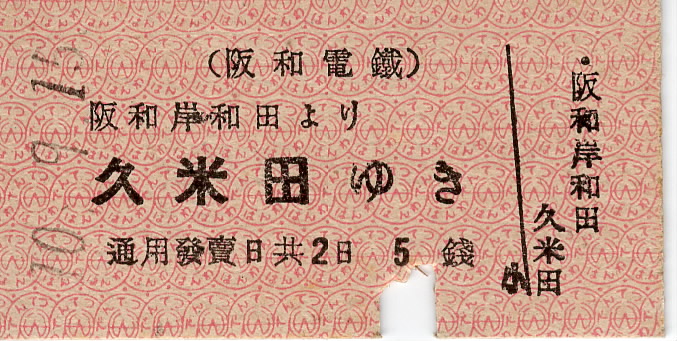 10.9.15
(阪和電鐵)
阪和岸和田より
久米田ゆき
通用發賣日共2日 5錢
阪和岸和田
久米田
小